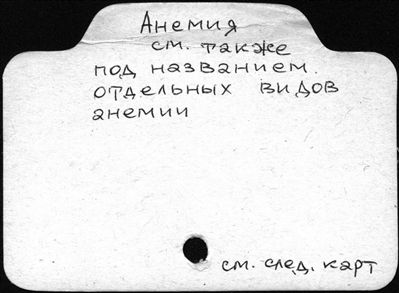 Анемия
см. также
под названием
отдельных видов
анемии
см. след. карт